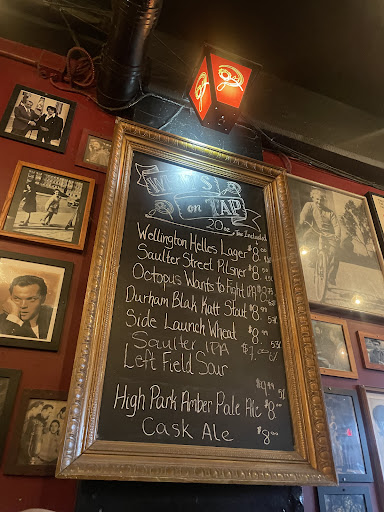 WHAT'S
on TAP
20 oz Tax Included
Wellington Helles Lager $8.
Saulter Street Pilsner $8.
Octopus Wants to Fight IPA $8.
Durham Blak Katt Stout $8.
Side Launch Wheat $8.
Saulter IPA
Left Field Sour
$9.99
High Park Amber Pale Ale $8.
Cask Ale $8.